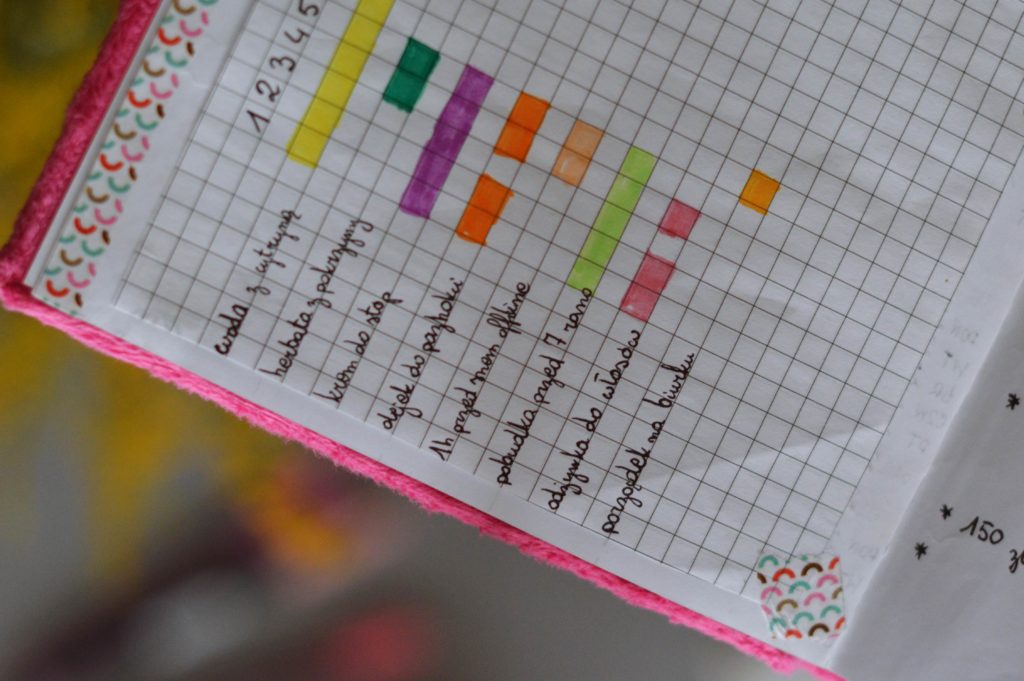 1 2 3 4 5
woda z cytryną
herbata z pokrzywy
krem do stóp
olejek do paznokci
1h przed snem offline
pobudka przed 7 rano
odżywka do włosów
porządek na biurku
*
* 150
*